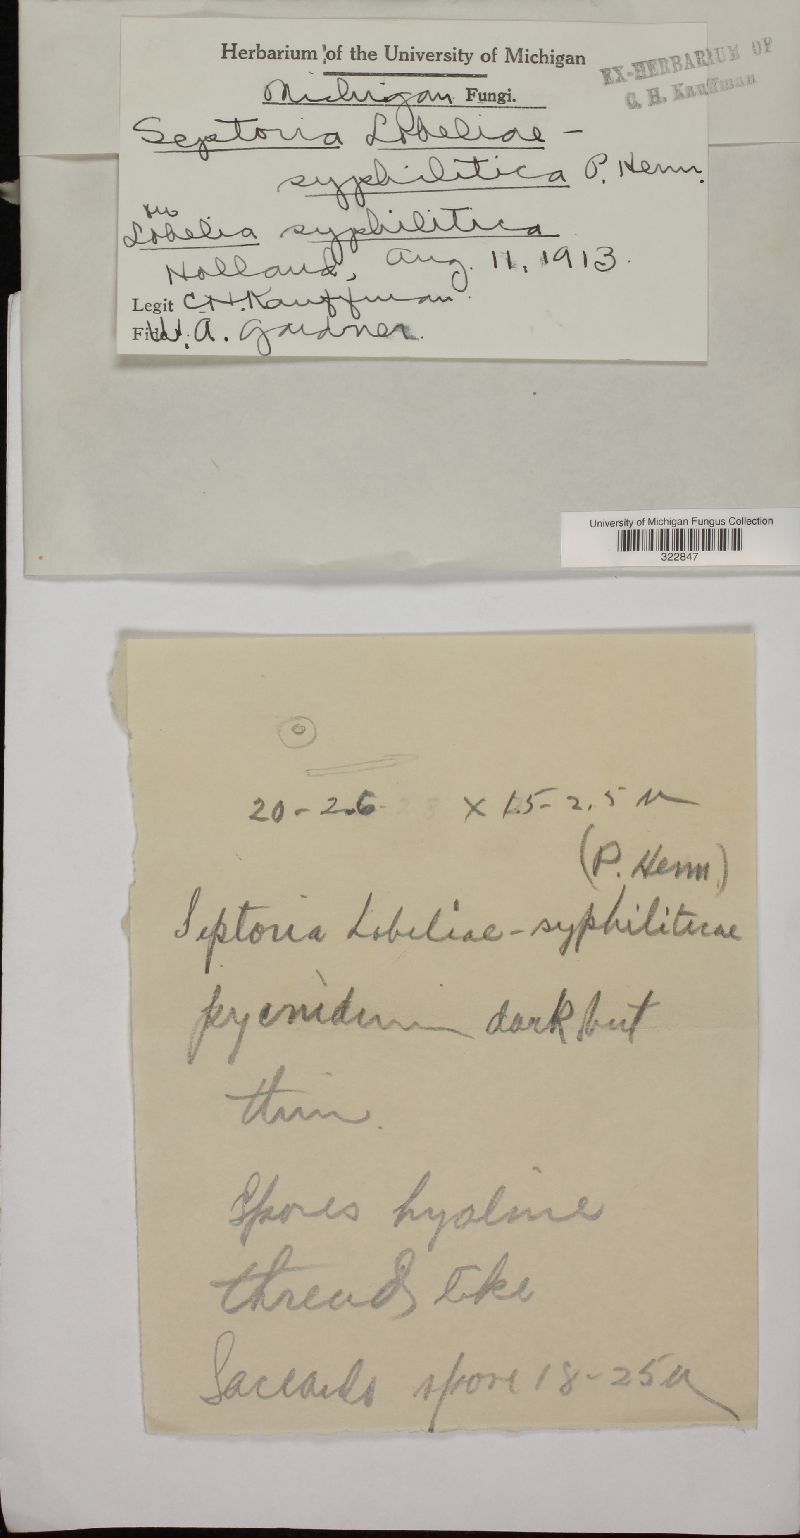 Herbarium of the University of Michigan
EX-HERBARIUM OF
C. H. Kauffman
Michigan Fungi.
Septoria Lobeliae-
syphilitica P. Henn.
on
Lobelia syphilitica
Holland, Aug. 11, 1913.
Legit C.H. Kauffman
Fide W. A. Gardner.
University of Michigan Fungus Collection
322847
20-26 x 1.5-2.5 u
(P. Henn)
Septoria Lobeliae-syphiliticae
pycnidium dark but
thin.
Spores hyaline
thread like
Saccardo spore 18-25u